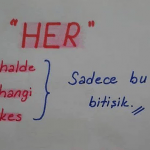 "HER"
halde
hangi
kes
Sadece bu
bitişik.